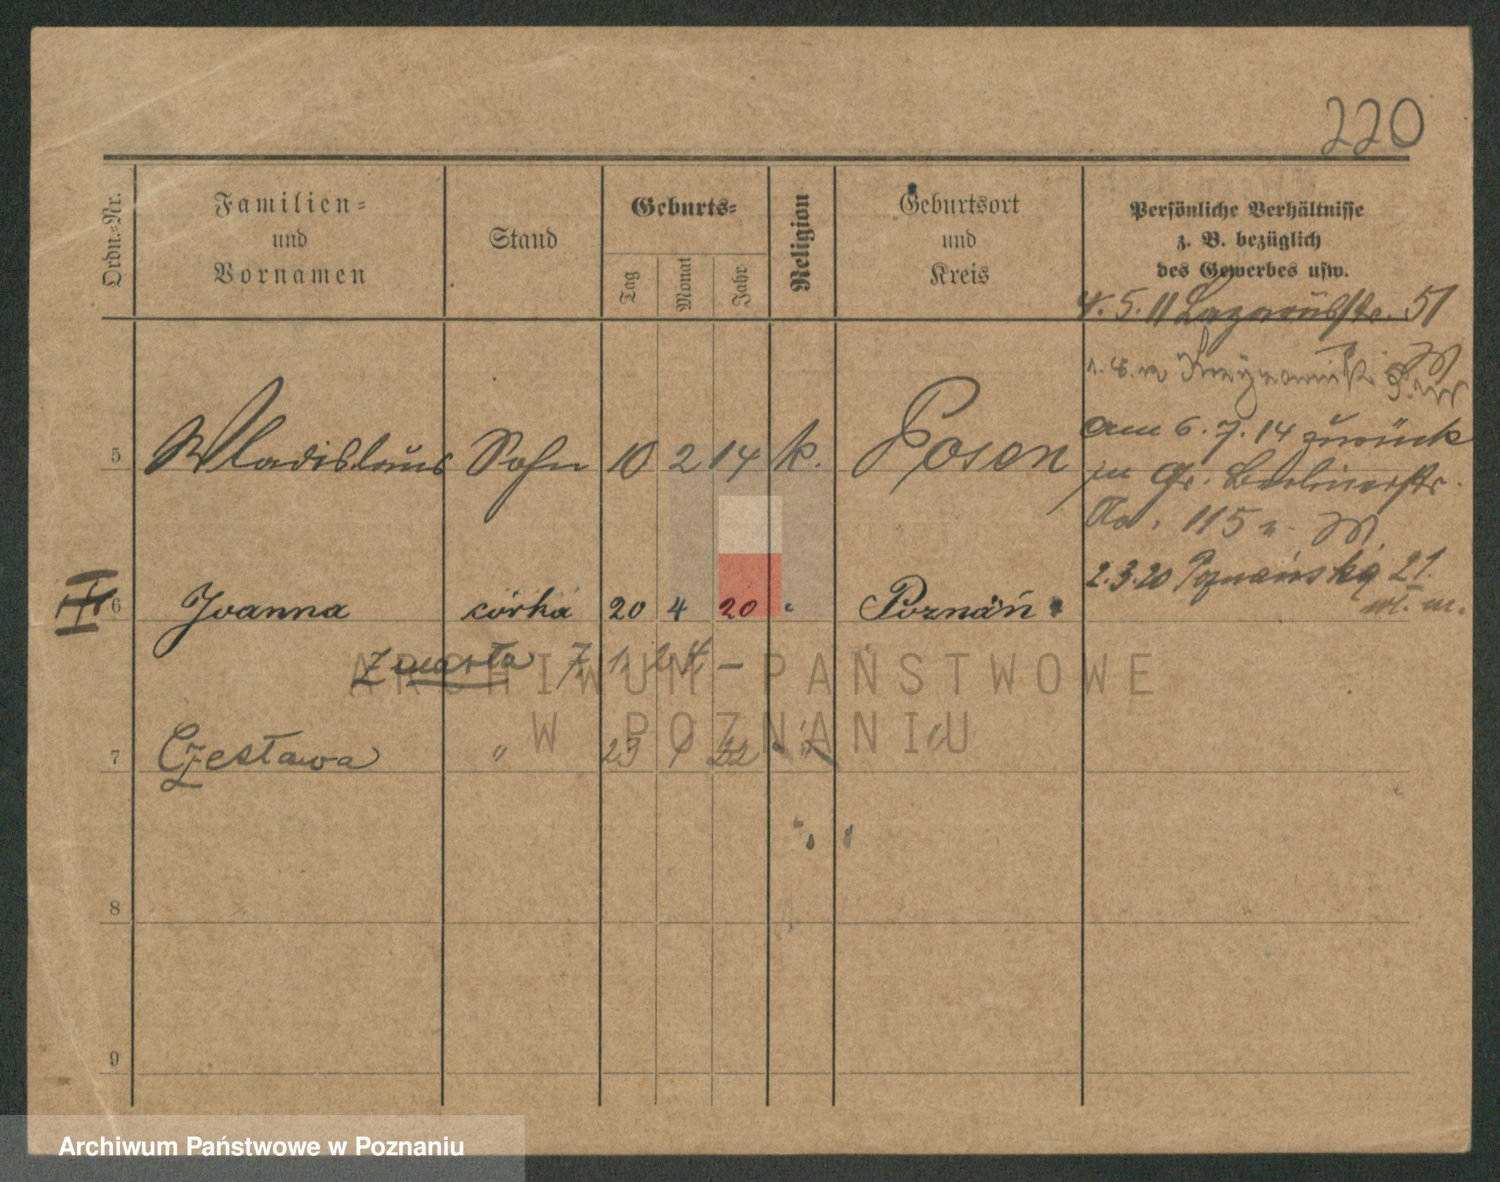 220
Ordn.-Nr.
Familien-
und
Vornamen
Stand
Geburts-
Tag
Monat
Jahr
Religion
Geburtsort
und
Kreis
Persönliche Verhältnisse
z. B. bezüglich
des Gewerbes usw.
4. 5. 11 Lazarusstr. 51
am 6. 7. 14 zurück
in Gr. Berlinerstr.
No. 115
2.3.20 Poznańska 21.
5 Wladislaus Sohn 10 2 14 k. Posen
6 Joanna córka 20 4 20 " Poznań
zmarła 7. 1. 24 –
7 Czesława " 23 1 22 " "
8
9
ARCHIWUM PAŃSTWOWE
W POZNANIU
Archiwum Państwowe w Poznaniu